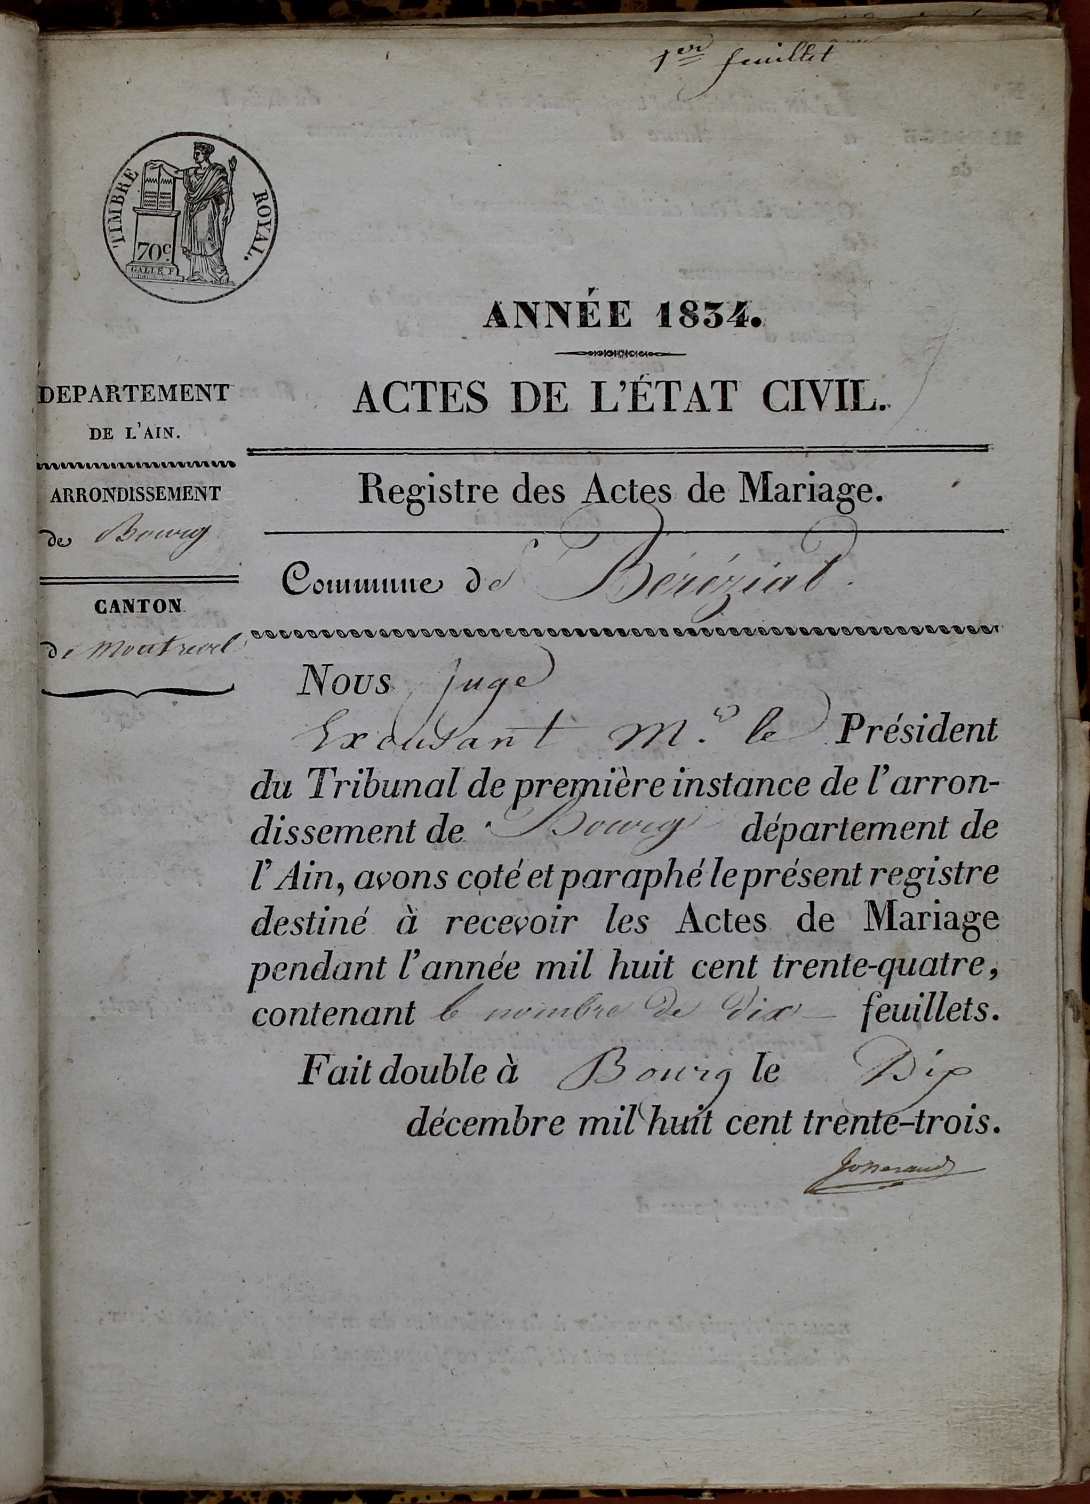 1er feuillet
TIMBRE ROYAL.
70c
GALLE F.
ANNÉE 1834.
ACTES DE L'ÉTAT CIVIL.
DEPARTEMENT
DE L'AIN.
ARRONDISSEMENT
de Bourg
CANTON
de Montrevel
Registre des Actes de Mariage.
Commune de Béréziat.
Nous Juge
Excusant Mr. le Président
du Tribunal de première instance de l'arron-
dissement de Bourg département de
l'Ain, avons coté et paraphé le présent registre
destiné à recevoir les Actes de Mariage
pendant l'année mil huit cent trente-quatre,
contenant le nombre de dix feuillets.
Fait double à Bourg le Dix
décembre mil huit cent trente-trois.